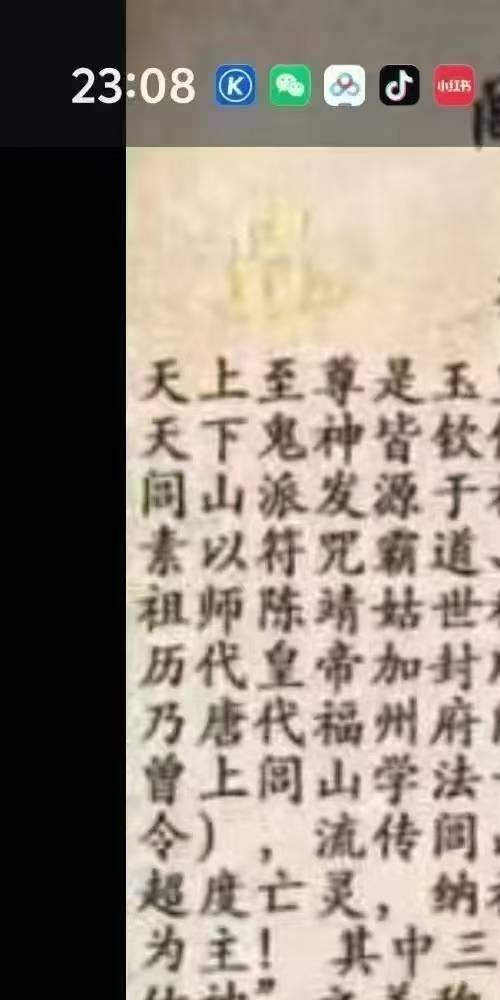 23:08
小红书
天上至尊是玉
天下鬼神皆钦
闾山派发源于
素以符咒霸道
祖师陈靖姑世
历代皇帝加封
乃唐代福州府
曾上闾山学法
令），流传闾
超度亡灵，纳
为主！其中三